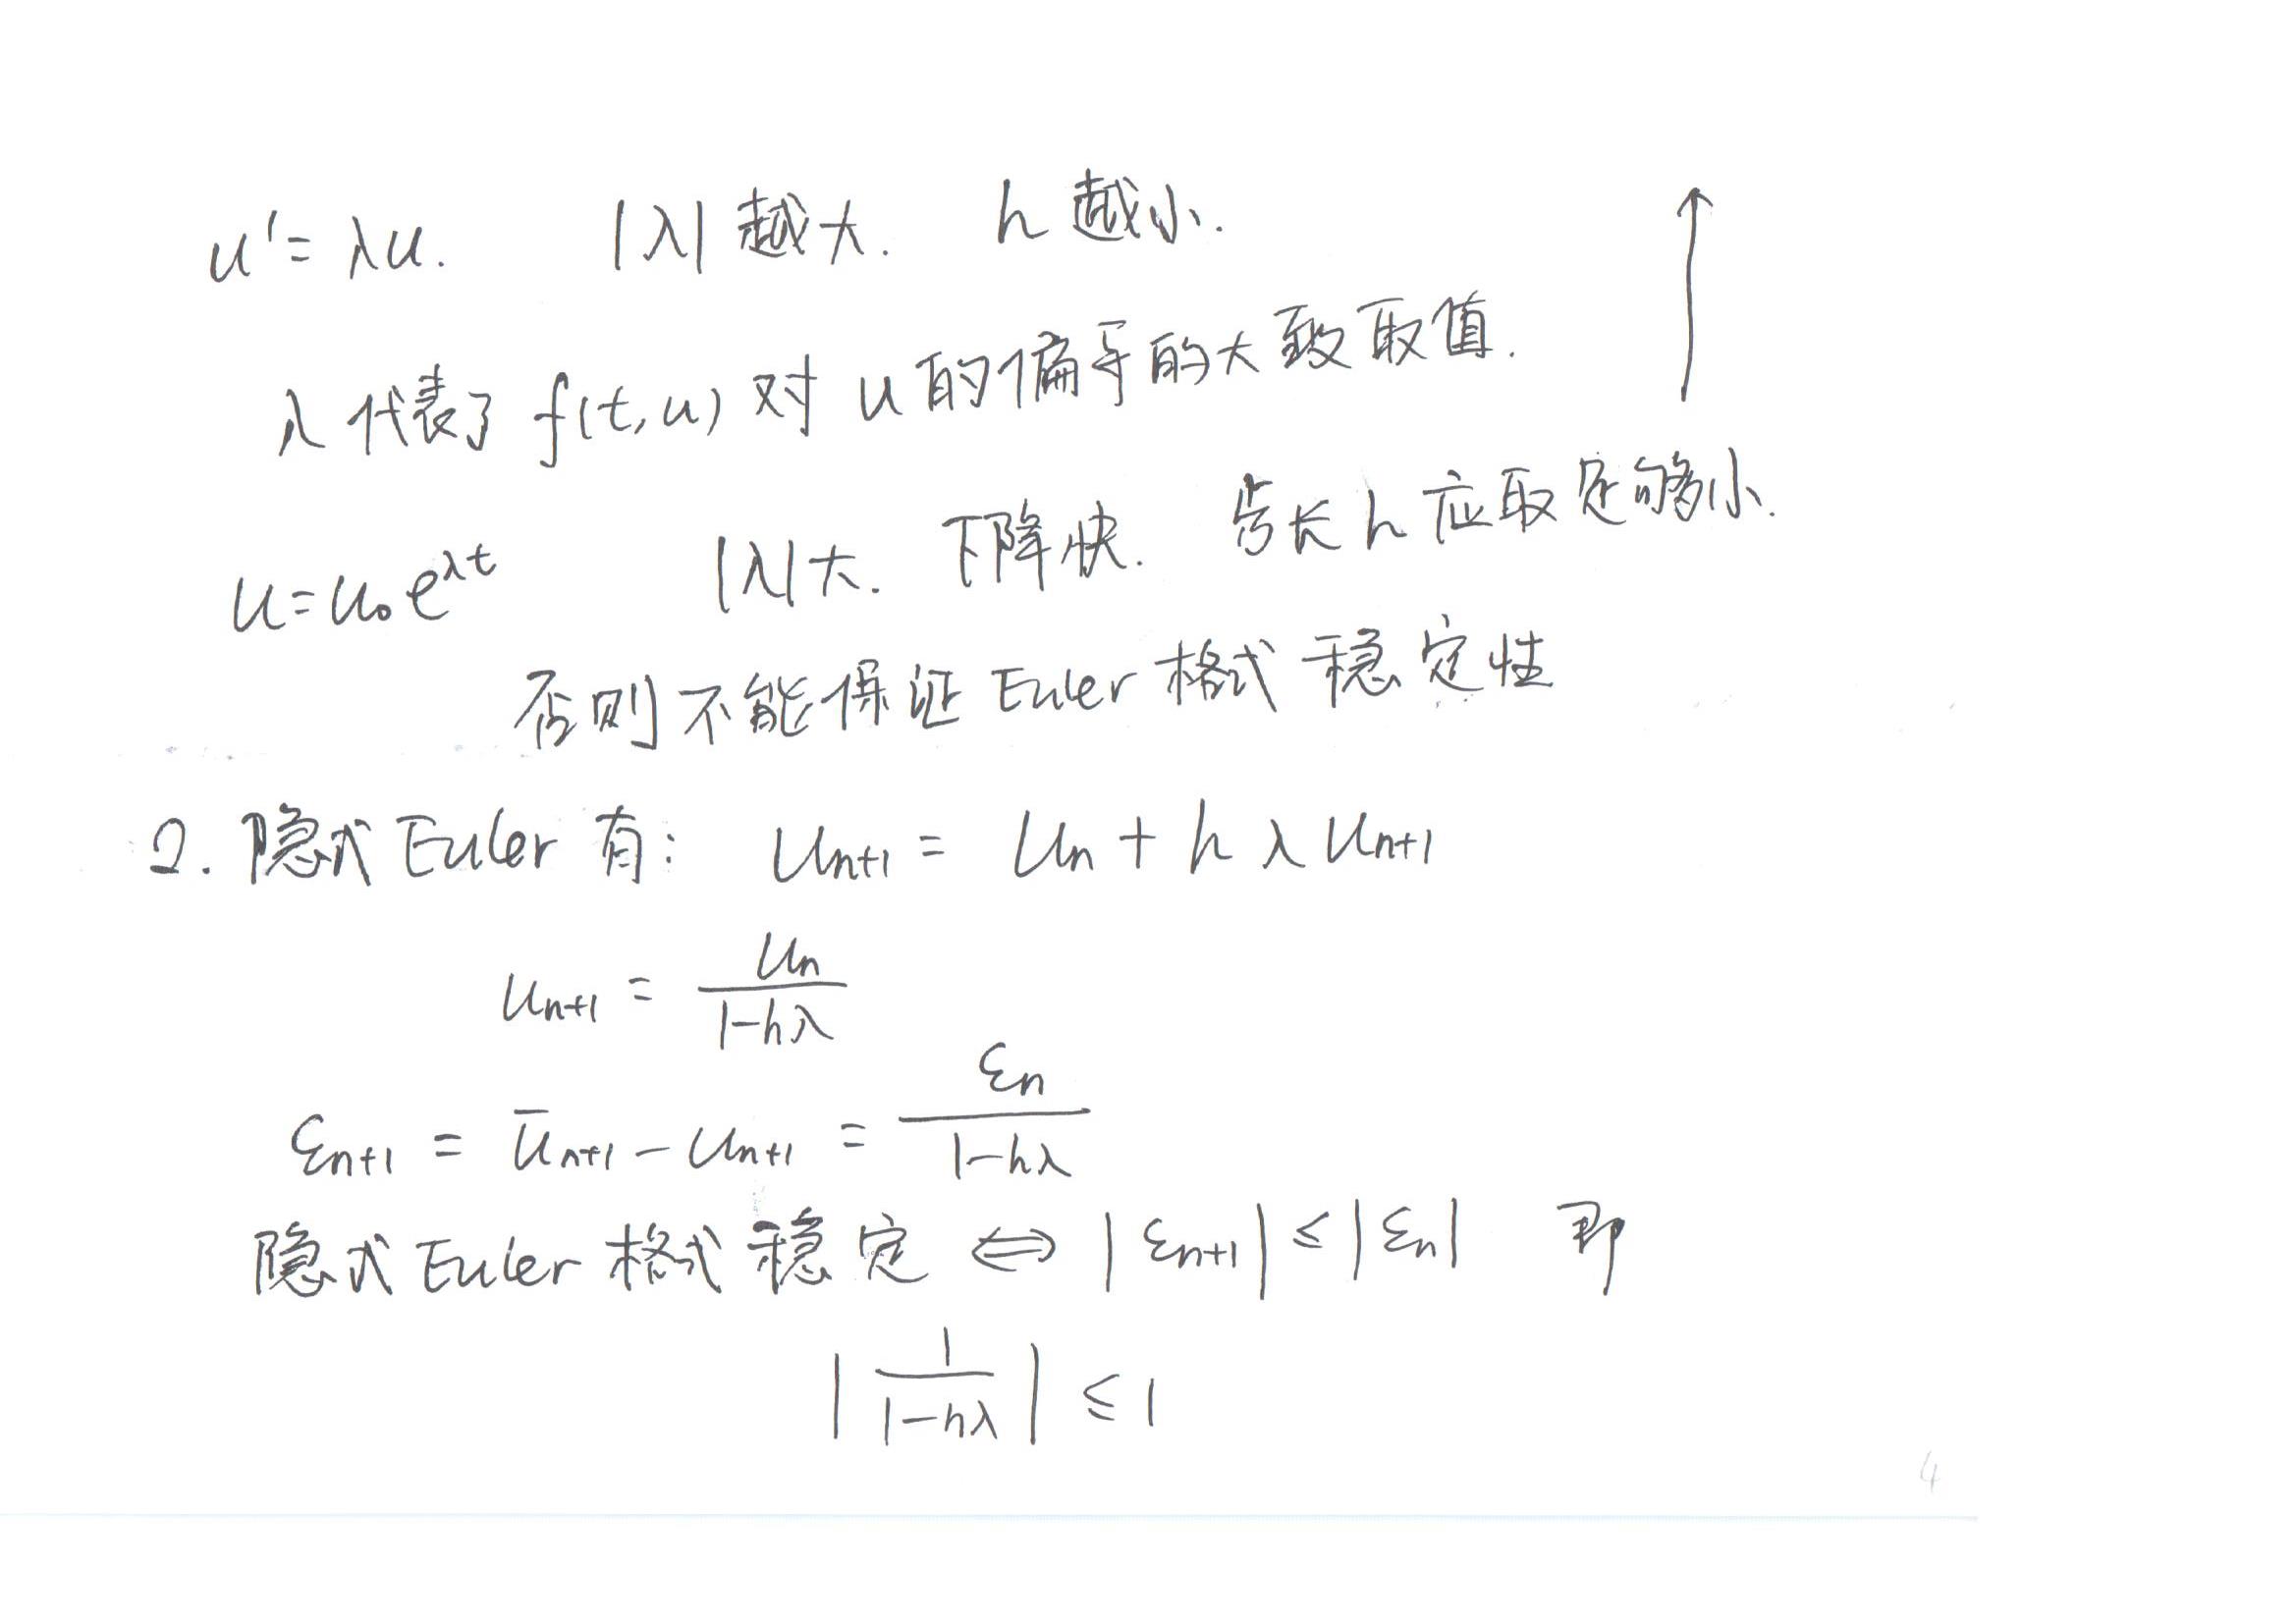 u' = λu. |λ| 越大. h 越小.
λ 代表了 f(t,u) 对 u 的偏导的大致取值.
u = u₀e^{λt} |λ|大. 下降快. 步长 h 应取足够小.
否则不能保证 Euler 格式 稳定性
2. 隐式 Euler 有: uₙ₊₁ = uₙ + h λ uₙ₊₁
uₙ₊₁ = uₙ / (1-hλ)
εₙ₊₁ = ūₙ₊₁ - uₙ₊₁ = εₙ / (1-hλ)
隐式 Euler 格式 稳定 ⇔ |εₙ₊₁| ≤ |εₙ| 即
| 1 / (1-hλ) | ≤ 1
4